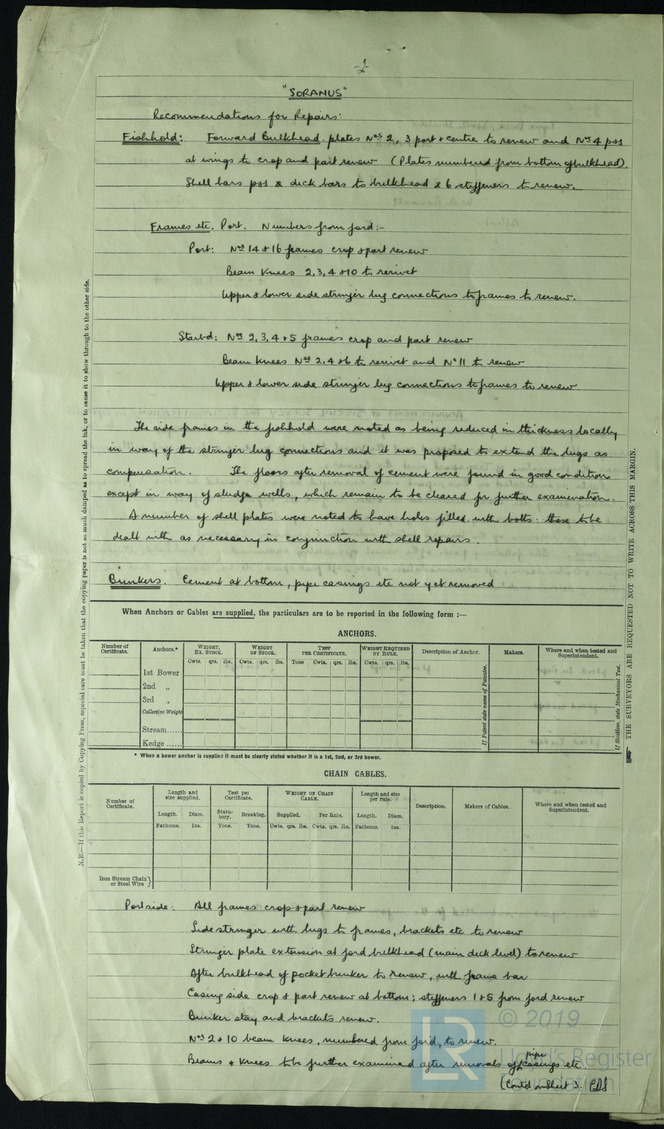 -2-
"SORANUS"
Recommendations for Repairs:
Fishhold: Forward Bulkhead. plates Nos 2, 3 port & centre to renew and No 4 p&s
at wings to crop and part renew (Plates numbered from bottom of bulkhead).
Shell bars p&s & deck bars to bulkhead & 6 stiffeners to renew.
Frames etc. Port. Numbers from ford:-
Port: Nos 14 & 16 frames crop & part renew
Beam Knees 2, 3, 4 & 10 to rerivet
Upper & lower side stringer lug connections to frames to renew.
Starbd: Nos 2, 3, 4 & 5 frames crop and part renew
Beam knees Nos 2, 4 & 6 to rerivet and No 11 to renew
Upper & lower side stringer lug connections to frames to renew
The side frames in the fishhold were noted as being reduced in thickness locally
in way of the stringer lug connections and it was proposed to extend the lugs as
compensation. The floors after removal of cement were found in good condition
except in way of sludge wells, which remain to be cleared for further examination.
A number of shell plates were noted to have holes filled with bolts: these to be
dealt with as necessary in conjunction with shell repairs.
Bunkers. Cement at bottom, pipe casings etc not yet removed
When Anchors or Cables are supplied, the particulars are to be reported in the following form :—
ANCHORS.
Number of Certificate. Anchors.* WEIGHT, EX. STOCK. WEIGHT OF STOCK. TEST PER CERTIFICATE. WEIGHT REQUIRED BY RULE. Description of Anchor. Makers. Where and when tested and Superintendent.
Cwts. qrs. lbs. Cwts. qrs. lbs. Tons Cwts. qrs. lbs. Cwts. qrs. lbs.
1st Bower
2nd „
3rd „
Collective Weight
Stream
Kedge
If Patent state name of Patentee.
If Stockless, state Mechanical Test.
* When a bower anchor is supplied it must be clearly stated whether it is a 1st, 2nd, or 3rd bower.
CHAIN CABLES.
Number of Certificate. Length and size supplied. Test per Certificate. WEIGHT OF CHAIN CABLE. Length and size per rule. Description. Makers of Cables. Where and when tested and Superintendent.
Length. Diam. Statutory. Breaking. Supplied. Per Rule. Length. Diam.
Fathoms. Ins. Tons. Tons. Cwts. qrs. lbs. Cwts. qrs. lbs. Fathoms. Ins.
Iron Stream Chain or Steel Wire
Portside: All frames crop & part renew
Side stringer with lugs to frames, brackets etc to renew
Stringer plate extension at ford bulkhead (main deck level) to renew
After bulkhead of pocket bunker to renew, with frame bar
Casing side crop & part renew at bottom; stiffeners 1 & 5 from ford renew
Bunker stay and brackets renew.
Nos 2 & 10 beam knees, numbered from ford, to renew.
Beams & Knees to be further examined after removals of pipe casings etc
(Contd on Sheet 3.
N.B.—If this Report is copied by Copying Press, especial care must be taken that the copying paper is not so much damped as to spread the ink, or to cause it to show through to the other side.
THE SURVEYORS ARE REQUESTED NOT TO WRITE ACROSS THIS MARGIN.
LR
© 2019
Lloyd's Register
Foundation